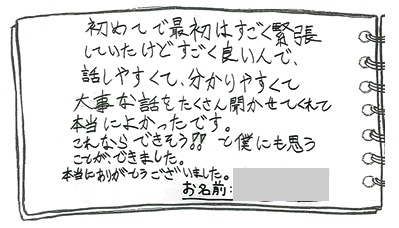 初めてで最初はすごく緊張
していたけどすごく良い人で、
話しやすくて、分かりやすくて
大事な話をたくさん聞かせてくれて
本当によかったです。
これならできそう!! と僕にも思う
ことができました。
本当にありがとうございました。
お名前: